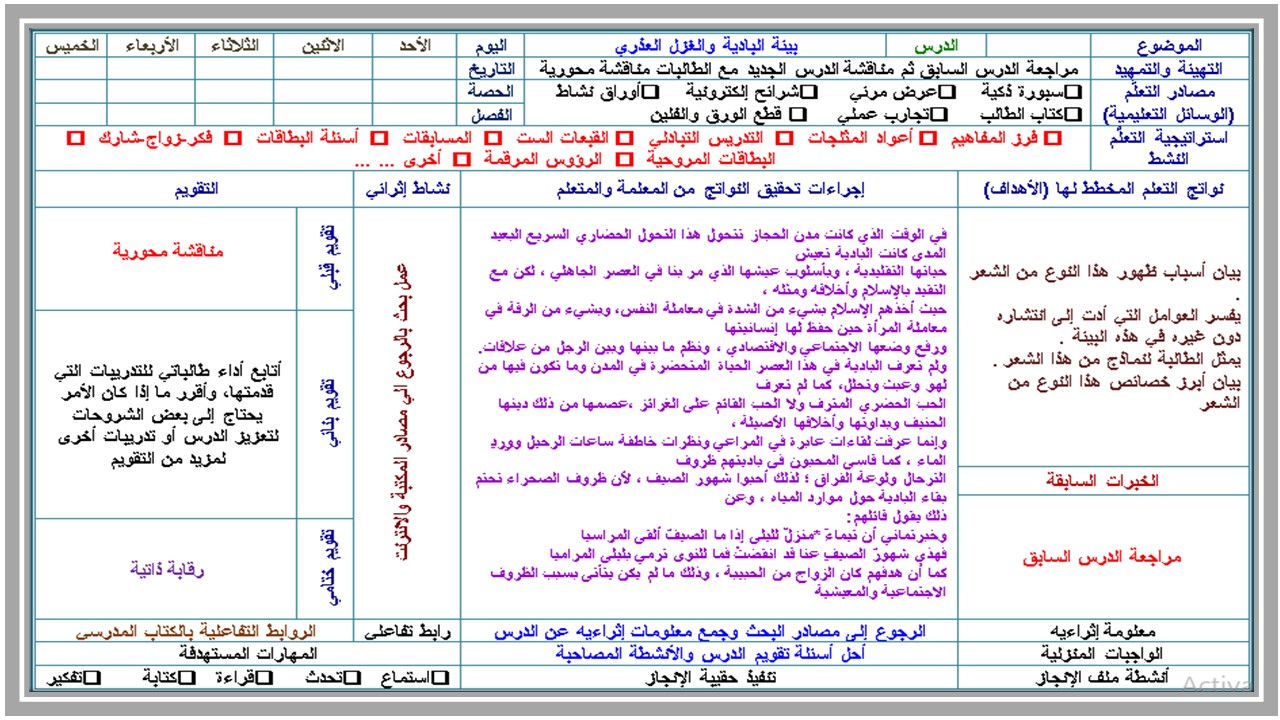 الموضوع الدرس بيئة البادية والغزل العذري اليوم الأحد الاثنين الثلاثاء الأربعاء الخميس
التهيئة والتمهيد مراجعة الدرس السابق ثم مناقشة الدرس الجديد مع الطالبات مناقشة محورية التاريخ
مصادر التعلم سبورة ذكية عرض مرئي شرائح إلكترونية أوراق نشاط الحصة
(الوسائل التعليمية) كتاب الطالب تجارب عملي قطع الورق والفلين الفصل
استراتيجية التعلم فرز المفاهيم أعواد المثلجات التدريس التبادلي القبعات الست المسابقات أسئلة البطاقات فكر-زواج-شارك
النشط البطاقات المروحية الرؤوس المرقمة أخرى ... ...
نواتج التعلم المخطط لها (الأهداف) إجراءات تحقيق النواتج من المعلمة والمتعلم نشاط إثرائي التقويم
بيان أسباب ظهور هذا النوع من الشعر
.
يفسر العوامل التي أدت إلى انتشاره
دون غيره في هذه البيئة .
يمثل الطالبة لنماذج من هذا الشعر .
بيان أبرز خصائص هذا النوع من
الشعر
الخبرات السابقة
مراجعة الدرس السابق
في الوقت الذي كانت مدن الحجاز تتحول هذا التحول الحضاري السريع البعيد
المدى كانت البادية تعيش
حياتها التقليدية ، وبأسلوب عيشها الذي مر بنا في العصر الجاهلي ، لكن مع
التقيد بالإسلام وأخلاقه ومثله ،
حيث أخذهم الإسلام بشيء من الشدة في معاملة النفس، وبشيء من الرقة في
معاملة المرأة حين حفظ لها إنسانيتها
ورفع وضعها الاجتماعي والاقتصادي ، ونظم ما بينها وبين الرجل من علاقات.
ولم تعرف البادية في هذا العصر الحياة المتحضرة في المدن وما تكون فيها من
لهو وعبث وتحلل، كما لم تعرف
الحب الحضري المترف ولا الحب القائم على الغرائز ،عصمها من ذلك دينها
الحنيف وبداوتها وأخلاقها الأصيلة ،
وإنما عرفت لقاءات عابرة في المراعي ونظرات خاطفة ساعات الرحيل وورود
الماء ، كما قاسى المحبون في باديتهم ظروف
الترحال ولوعة الفراق ؛ لذلك أحبوا شهور الصيف ، لأن ظروف الصحراء تحتم
بقاء البادية حول موارد المياه ، وعن
ذلك يقول قائلهم:
وخبرتماني أن تيماءَ *منزلٌ لليلى إذا ما الصيفُ ألقى المراسيا
فهذي شهورُ الصيفِ عنا قد انقضتْ فما للنوى ترمي بليلى المراميا
كما أن هدفهم كان الزواج من الحبيبة ، وذلك ما لم يكن يتأتى بسبب الظروف
الاجتماعية والمعيشية
عمل بحث بالرجوع الي مصادر المكتبة والانترنت
تقويم قبلي
مناقشة محورية
تقويم بنائي
أتابع أداء طالباتي للتدريبات التي
قدمتها، وأقرر ما إذا كان الأمر
يحتاج إلى بعض الشروحات
لتعزيز الدرس أو تدريبات أخرى
لمزيد من التقويم
تقويم ختامي
رقابة ذاتية
معلومة إثراءيه الرجوع إلى مصادر البحث وجمع معلومات إثراءيه عن الدرس رابط تفاعلي الروابط التفاعلية بالكتاب المدرسي
الواجبات المنزلية أحل أسئلة تقويم الدرس والأنشطة المصاحبة المهارات المستهدفة
أنشطة ملف الإنجاز تنفيذ حقيبة الإنجاز استماع تحدث قراءة كتابة تفكير
Activa